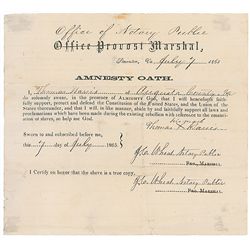 Office of Notary Public
Office Provost Marshal,
Va July 7 1865
AMNESTY OATH.
I Thomas of Augusta County, Va
do solemnly swear, in the presence of ALMIGHTY GOD, that I will henceforth faith-
fully support, protect and defend the Constitution of the United States, and the Union of the
States thereunder; and that I will, in like manner, abide by and faithfully support all laws
and proclamations which have been made during the existing rebellion with reference to the eman-
cipation of slaves, so help me God.
his mark
Thomas X
Sworn to and subscribed before me,
this 7 day of July 1865.
Notary Public
PRO. MARSHAL
I Certify on honor that the above is a true copy,
Notary Public
PRO. MARSHAL.